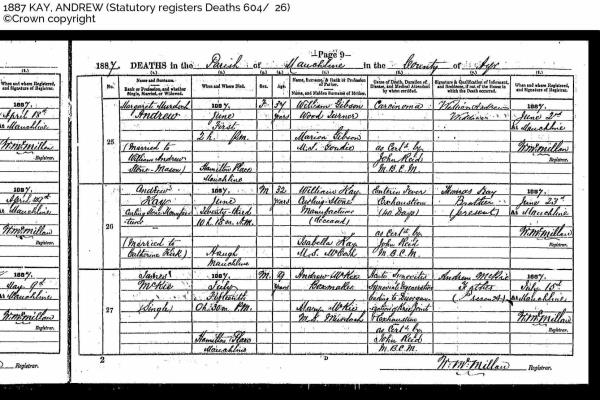 1887 KAY, ANDREW (Statutory registers Deaths 604/ 26)
©Crown copyright
Page 9
1887. DEATHS in the Parish of Mauchline in the County of Ayr
No.
Name and Surname.
Rank or Profession, and whether Single, Married, or Widowed.
When and Where Died.
Sex.
Age.
Name, Surname, & Rank or Profession of Father.
Name, and Maiden Surname of Mother.
Cause of Death, Duration of Disease, and Medical Attendant by whom certified.
Signature & Qualification of Informant, and Residence, if out of the House in which the Death occurred.
When and where Registered, and Signature of Registrar.
25
Margaret Murdoch
Andrew
(Married to
William Andrew
Stone-Mason)
1887.
June
First
2h. P.M.
Hamilton Place
Mauchline
F.
57
Years
William Gibson
Wood Turner
Marion Gibson
M.S. Goudie
Carcinoma
as Certd. by
John Reid
M.B.C.M.
William Andrew
Widower
1887.
June 2nd
at Mauchline
Wm McMillan
Registrar.
26
Andrew
Kay
Curling Stone Manufacturer
(Married to
Catherine Kirk)
1887.
June
Twenty-third
10h. 15m. A.M.
Haugh
Mauchline
M.
32
Years
William Kay
Curling-Stone
Manufacturer
(Deceased)
Isabella Kay
Enteric Fever
Exhaustion
as Certd. by
John Reid
M.B.C.M.
Thomas Kay
Brother
(present)
1887.
June 23rd
at Mauchline
Wm McMillan
Registrar.
27
James
McKie
(Single)
1887.
July
Fifteenth
0h. 30m. P.M.
Hamilton Place
Mauchline
M.
9
Years
Andrew McKie
Boxmaker
Mary McKie
M.S. Murdoch
Exhaustion
as Certd. by
John Reid
M.B.C.M.
Andrew McKie
Father
(Present)
1887.
July 15th
at Mauchline
Wm McMillan
Registrar.
2
D
Wm McMillan
Registrar.
When and where Registered, and Signature of Registrar.
1887.
April 18th
at Mauchline
Wm McMillan
Registrar.
1887.
at Mauchline
Wm McMillan
Registrar.
1887.
May 9th
at Mauchline
Wm McMillan
Registrar.
Registrar.